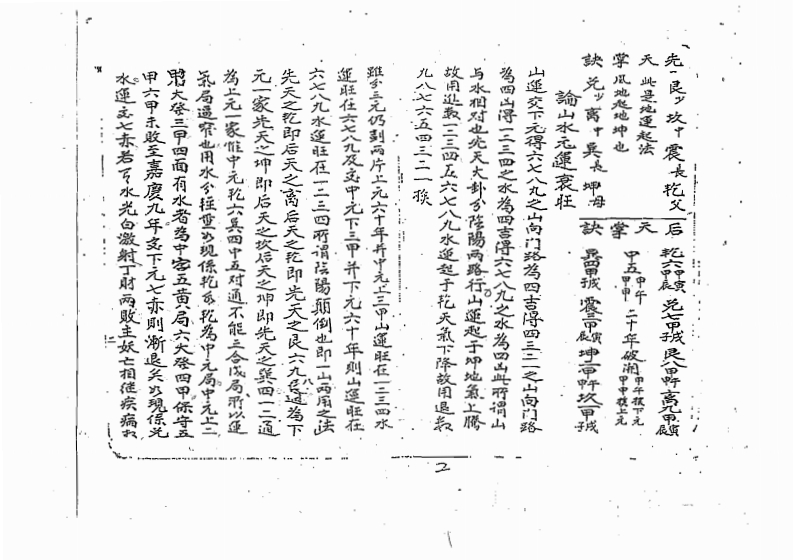 先一艮少坎中震長乾父
天 此是地運起法
掌 从地起地坤也
訣 兌少离中巽長坤母
后 乾六甲寅甲辰兌七甲戌艮八甲申离九甲寅甲辰
天 中五甲午甲申二十年破湘甲午擬下元甲申擬上元
掌
訣 巽四甲戌震三甲寅甲辰坤二甲申坎一甲戌
論山水元運衰旺
山運交下元得六七八九之山向門路為四吉得四三二一之山向門路
為四凶得一二三四之水為四吉得六七八九之水為四凶此所謂山
与水相对也先天大卦分陰陽兩路行山運起于坤地氣上騰
故用進數一二三四五六七八九水運起于乾天氣下降故用退數
九八七六五四三二一挨
雖分三元仍割兩片上元六十年并中元上三甲山運旺在一二三四水
運旺在六七八九及交中元下三甲并下元六十年則山運旺在
六七八九水運旺在一二三四所謂陰陽顛倒也即一山兩用之法
先天之乾即后天之离后天之乾即先天之艮六九八通為下
元一家先天之坤即后天之坎后天之坤即先天之巽四一二通
為上元一家惟中元乾六巽四中五对通不能三合成局所以運
氣局還窄也用水分輕重如現係乾分乾為中元局中元上二
大發三甲四面有水者為中宮五黄局六大發四甲保守五
甲六甲未敗至嘉慶九年交下元七赤則漸退矣如現係兌
水運交七赤若有水光白激射丁財兩敗主妖亡相继疾病